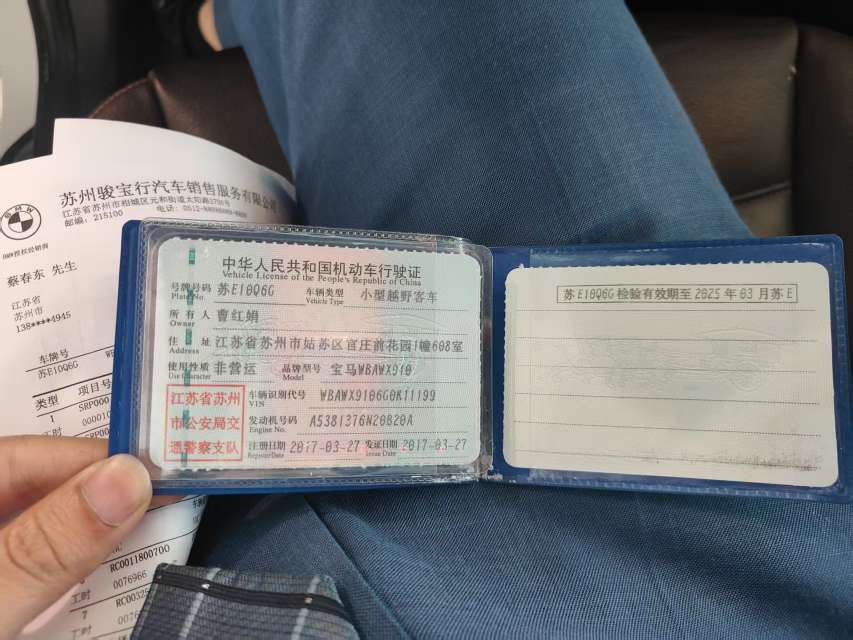 苏州骏宝行汽车销售服务有限公司
江苏省苏州市相城区元和街道太阳路2790号
邮编：215100
BMW授权经销商
蔡春东 先生
江苏省
苏州市
138****4945
车牌号
苏E10Q6G
类型 项目号
1 SRP000
中华人民共和国机动车行驶证
Vehicle License of the People's Republic of China
号牌号码 苏E10Q6G 车辆类型 小型越野客车
Plate No. Vehicle Type
所有人 曹红娟
Owner
住址 江苏省苏州市姑苏区官庄前花园1幢608室
Address
使用性质 非营运 品牌型号 宝马WBAWX910
Use Character Model
江苏省苏州
市公安局交
通警察支队
车辆识别代号 WBAWX9106G0K11199
VIN
发动机号码 A5381376N20B20A
Engine No.
注册日期 2017-03-27 发证日期 2017-03-27
Register Date Issue Date
苏E10Q6G 检验有效期至 2025 年 03 月 苏E
RC0011800700
工时 0076966
7 RC00325
工时